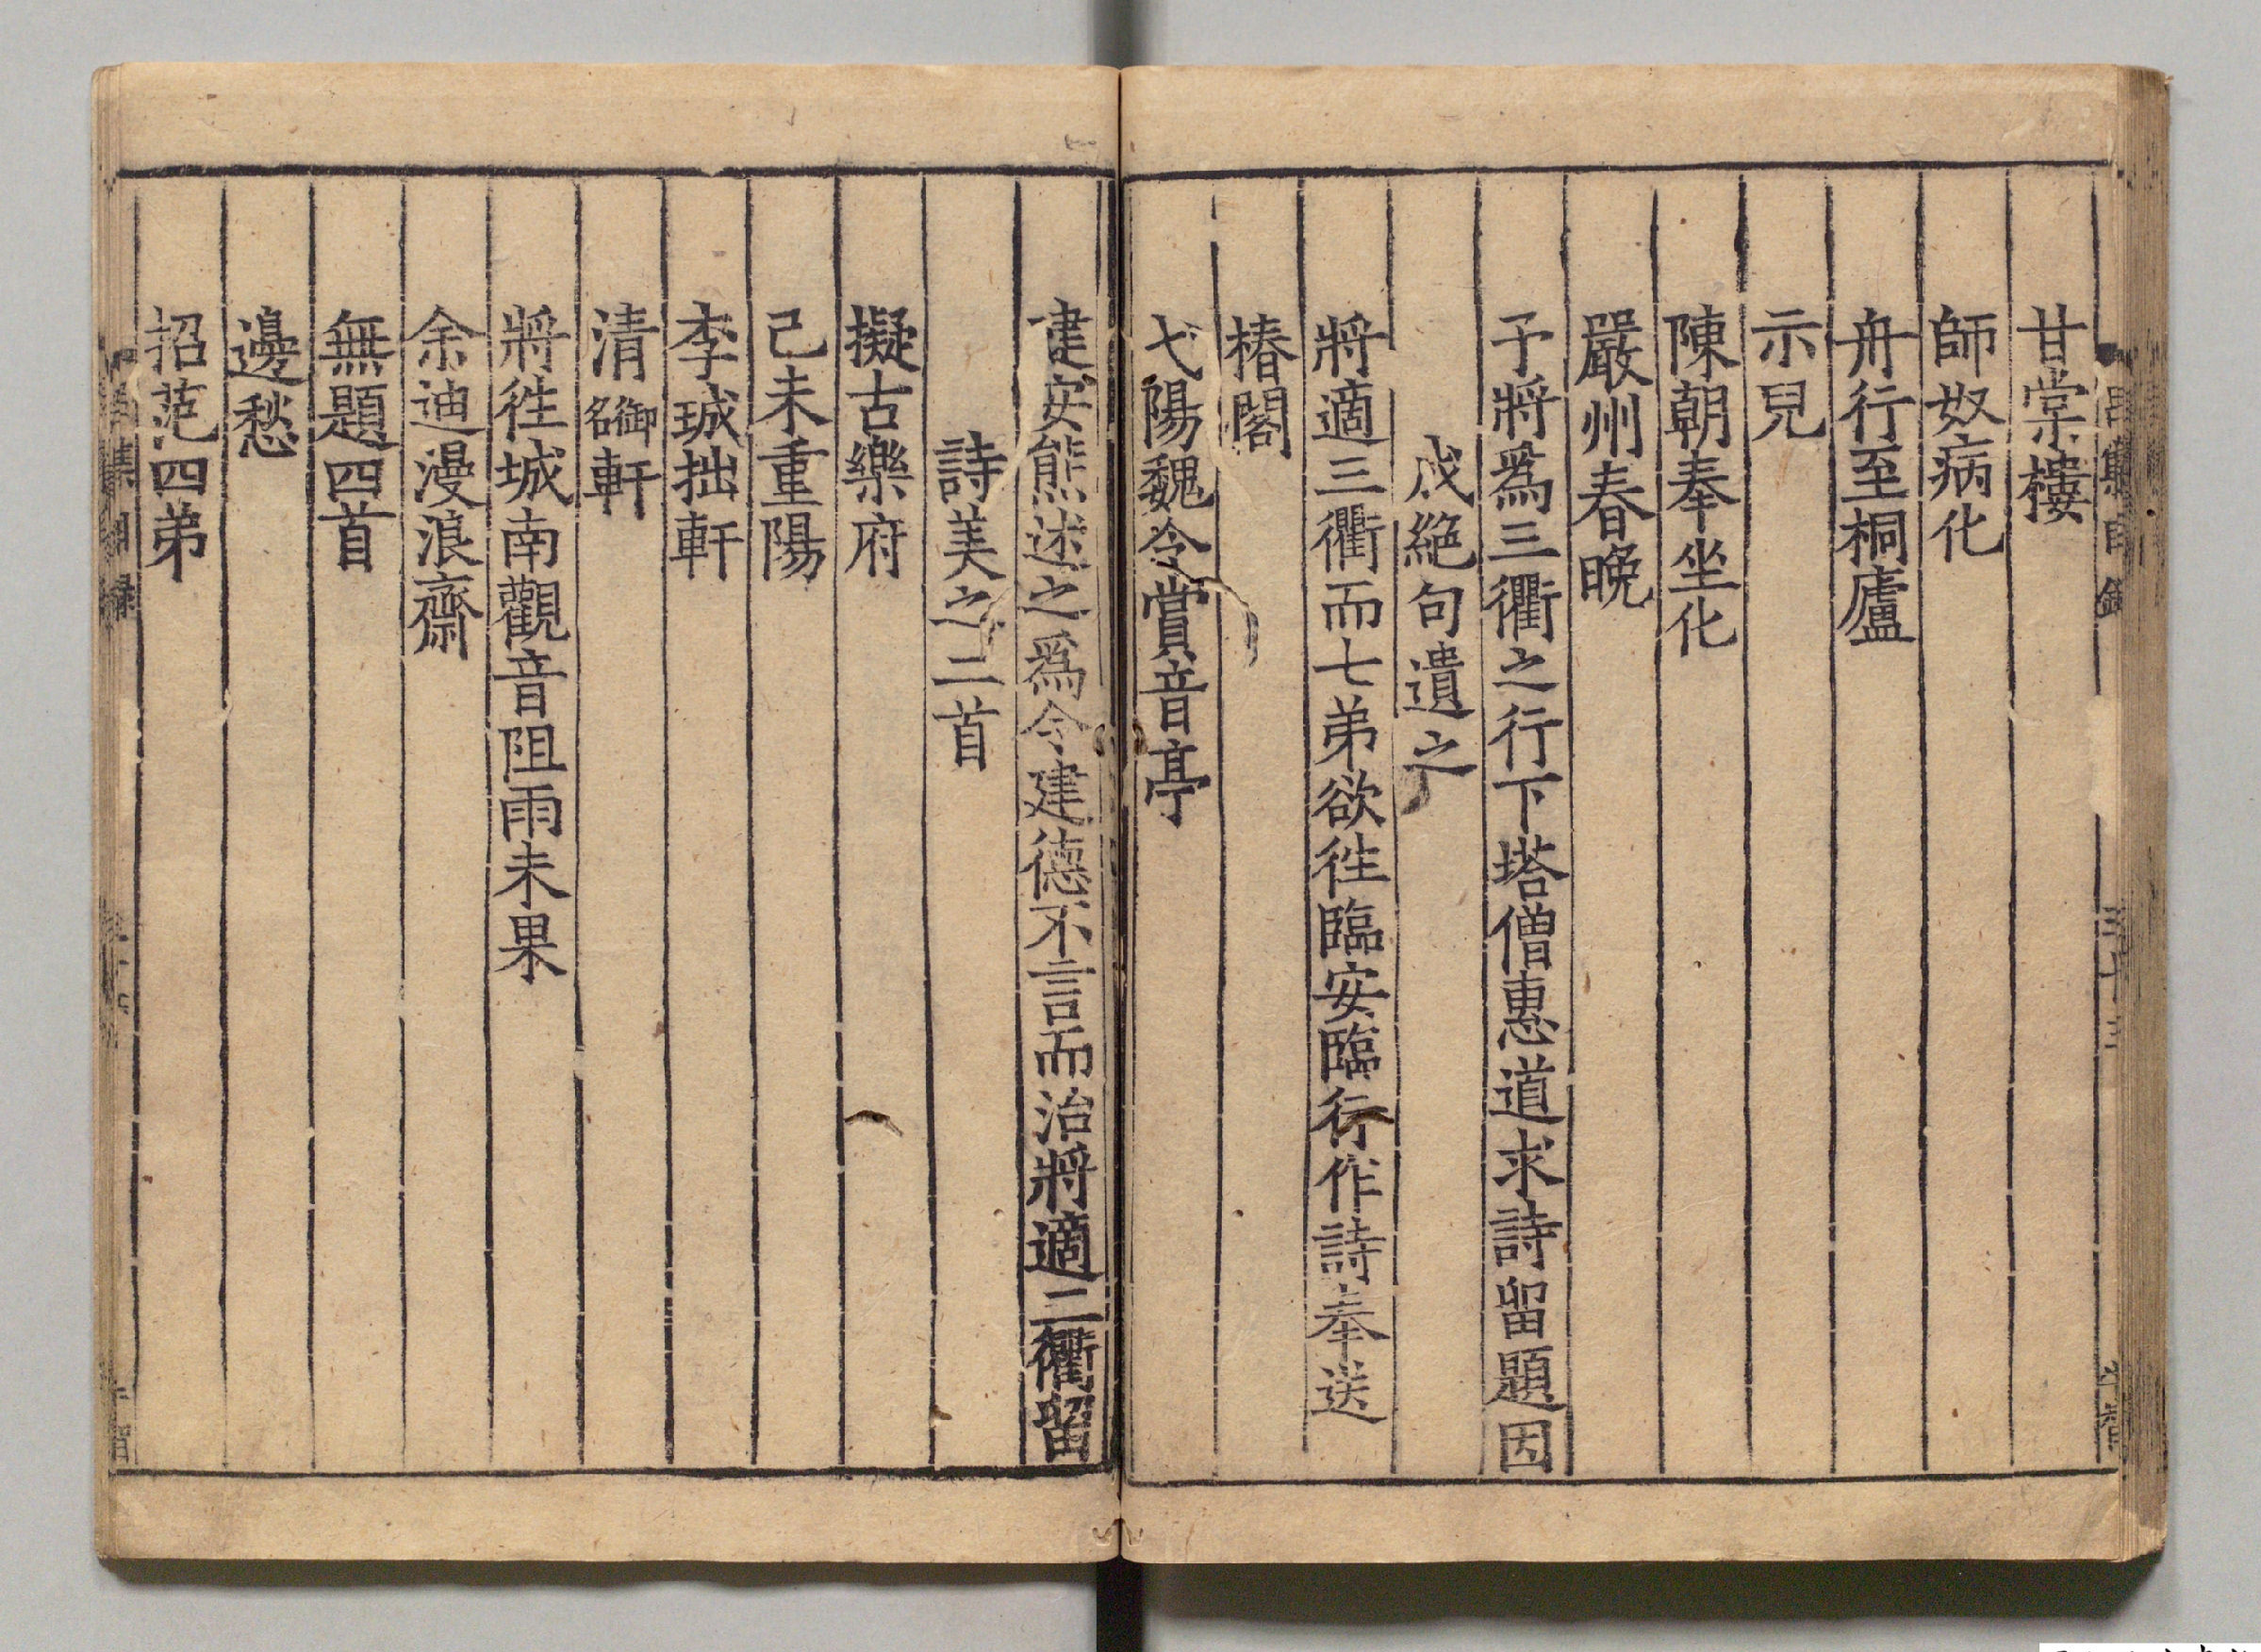 甘棠樓
師奴病化
舟行至桐廬
示兒
陳朝奉坐化
嚴州春晚
予將爲三衢之行下塔僧惠道求詩留題因
成絶句遺之
將適三衢而七弟欲徃臨安臨行作詩奉送
椿閣
弋陽魏令賞音亭
建安熊述之爲令建德不言而治將適三衢留
詩美之二首
擬古樂府
己未重陽
李珹拙軒
清御名軒
將徃城南觀音阻雨未果
余迪漫浪齋
無題四首
邊愁
招范四弟